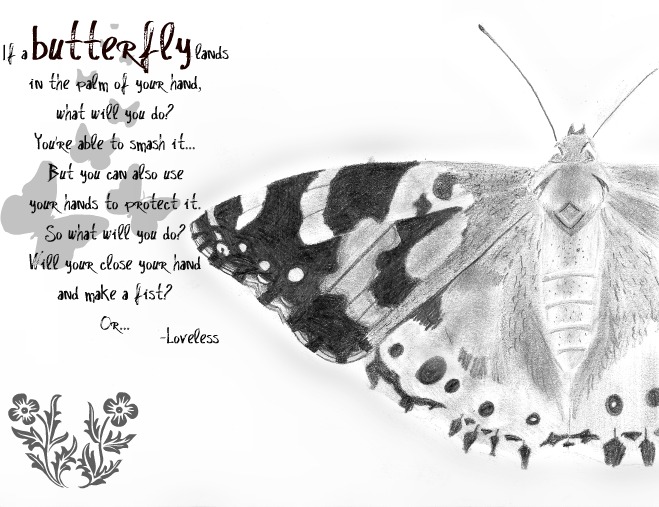 If a butterfly lands
in the palm of your hand,
what will you do?
You're able to smash it...
But you can also use
your hands to protect it.
So what will you do?
Will your close your hand
and make a fist?
Or...
-Loveless